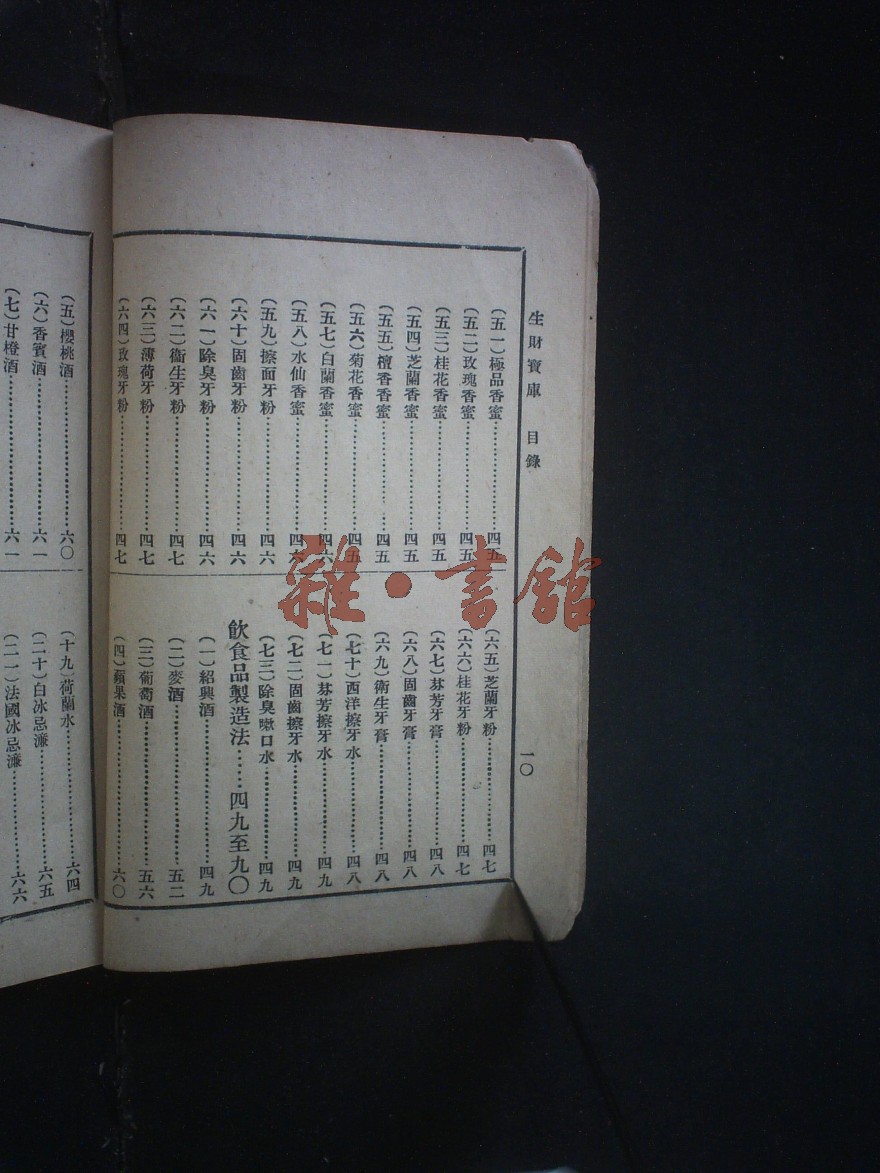 生財寶庫　目錄
一〇
（五一）極品香蜜……四五
（五二）玫瑰香蜜……四五
（五三）桂花香蜜……四五
（五四）芝蘭香蜜……四五
（五五）檀香香蜜……四五
（五六）菊花香蜜……四五
（五七）白蘭香蜜……四六
（五八）水仙香蜜……四六
（五九）擦面牙粉……四六
（六十）固齒牙粉……四六
（六一）除臭牙粉……四六
（六二）衞生牙粉……四七
（六三）薄荷牙粉……四七
（六四）玫瑰牙粉……四七
（六五）芝蘭牙粉……四七
（六六）桂花牙粉……四七
（六七）芬芳牙膏……四八
（六八）固齒牙膏……四八
（六九）衞生牙膏……四八
（七十）西洋擦牙水……四八
（七一）芬芳擦牙水……四九
（七二）固齒擦牙水……四九
（七三）除臭嗽口水……四九
飲食品製造法……四九至九〇
（一）紹興酒……四九
（二）麥酒……五二
（三）葡萄酒……五六
（四）蘋果酒……六〇
（五）櫻桃酒……六〇
（六）香賓酒……六一
（七）甘橙酒……六一
（十九）荷蘭水……六四
（二十）白冰忌濂……六五
（二一）法國冰忌濂……六六
雜·書館